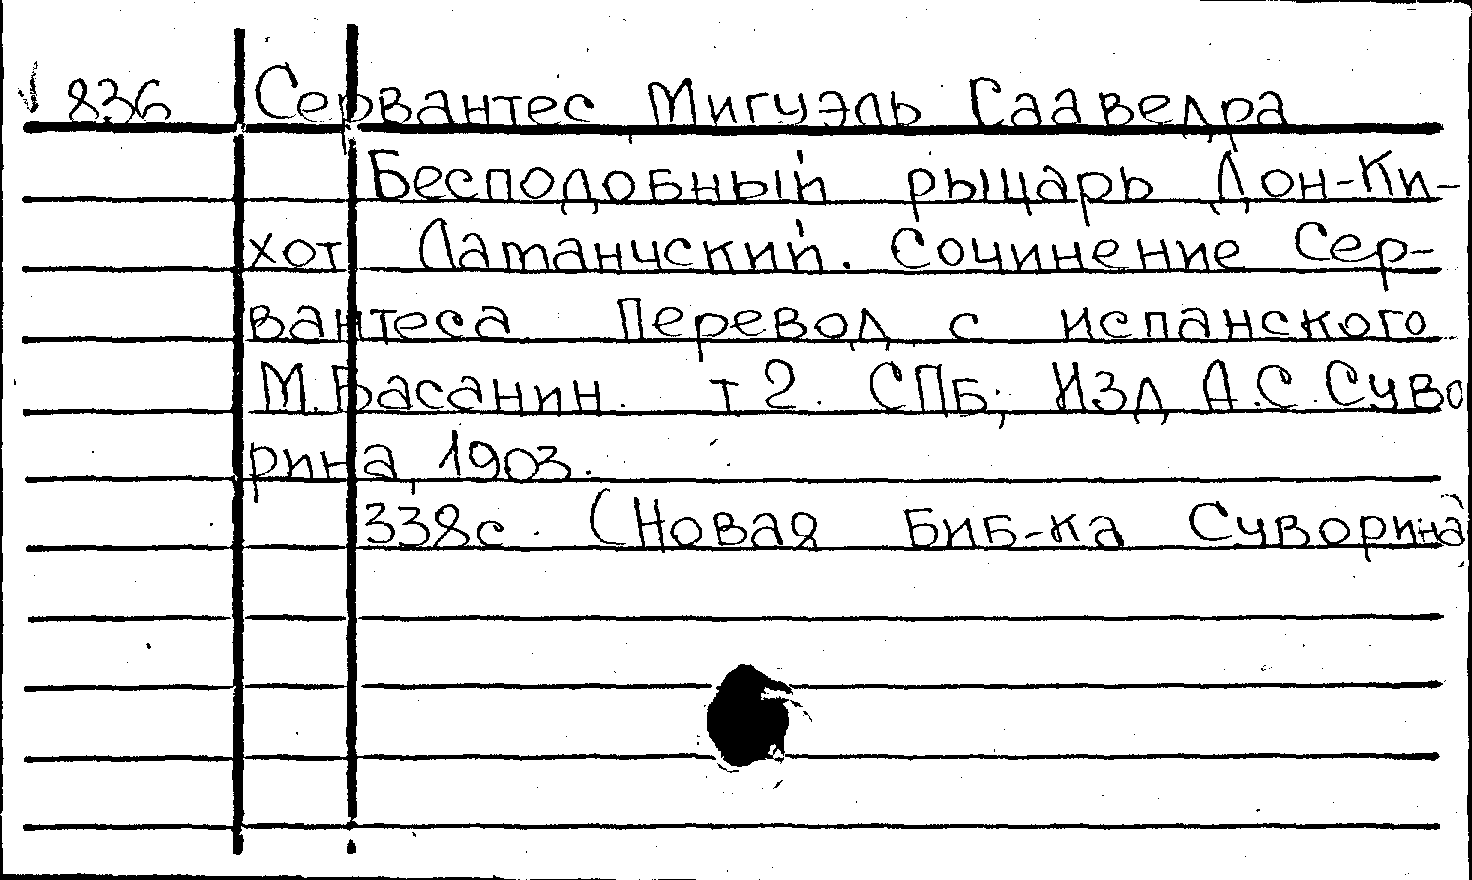 836 Сервантес Мигуэль Сааведра
Бесподобный рыцарь Дон-Ки-
хот Ламанчский. Сочинение Сер-
вантеса Перевод с испанского
М.Басанин. т 2. СПБ; Изд А.С.Суво
рина, 1903.
338с. (Новая Биб-ка Суворина)